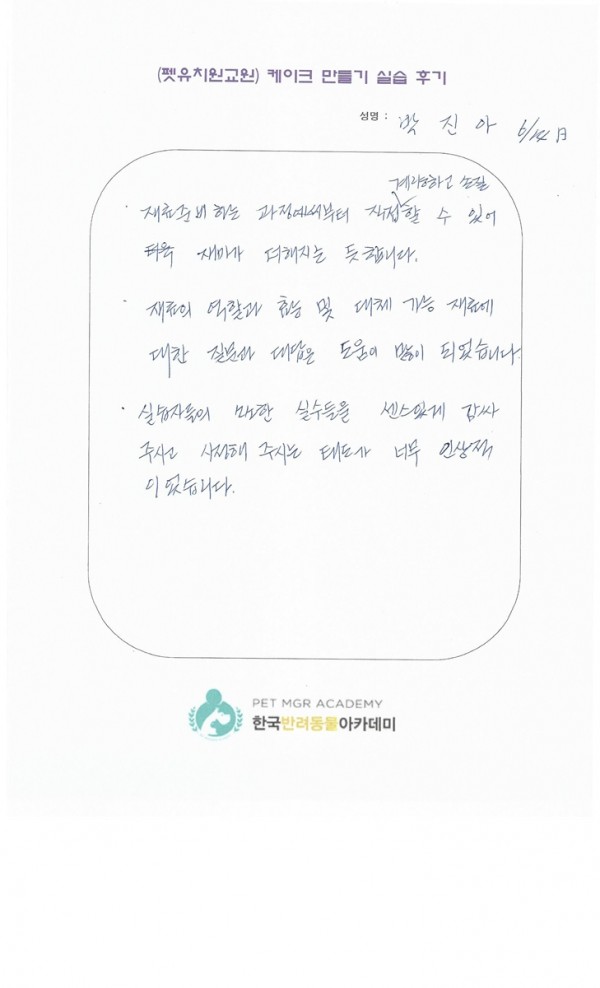 (펫유치원교원) 케이크 만들기 실습 후기
성명 : 박 진 아 6/14 日
계량하고 손질
· 재료준비 하는 과정에서부터 직접 할 수 있어
더욱 재미가 더해지는 듯합니다.
· 재료의 역할과 효능 및 대체 가능 재료에
대한 질문과 대답은 도움이 많이 되었습니다
· 실습자들의 만은 실수들을 센스있게 감싸
주시고 시정해 주시는 태도가 너무 인상적
이었습니다.
PET MGR ACADEMY
한국반려동물아카데미